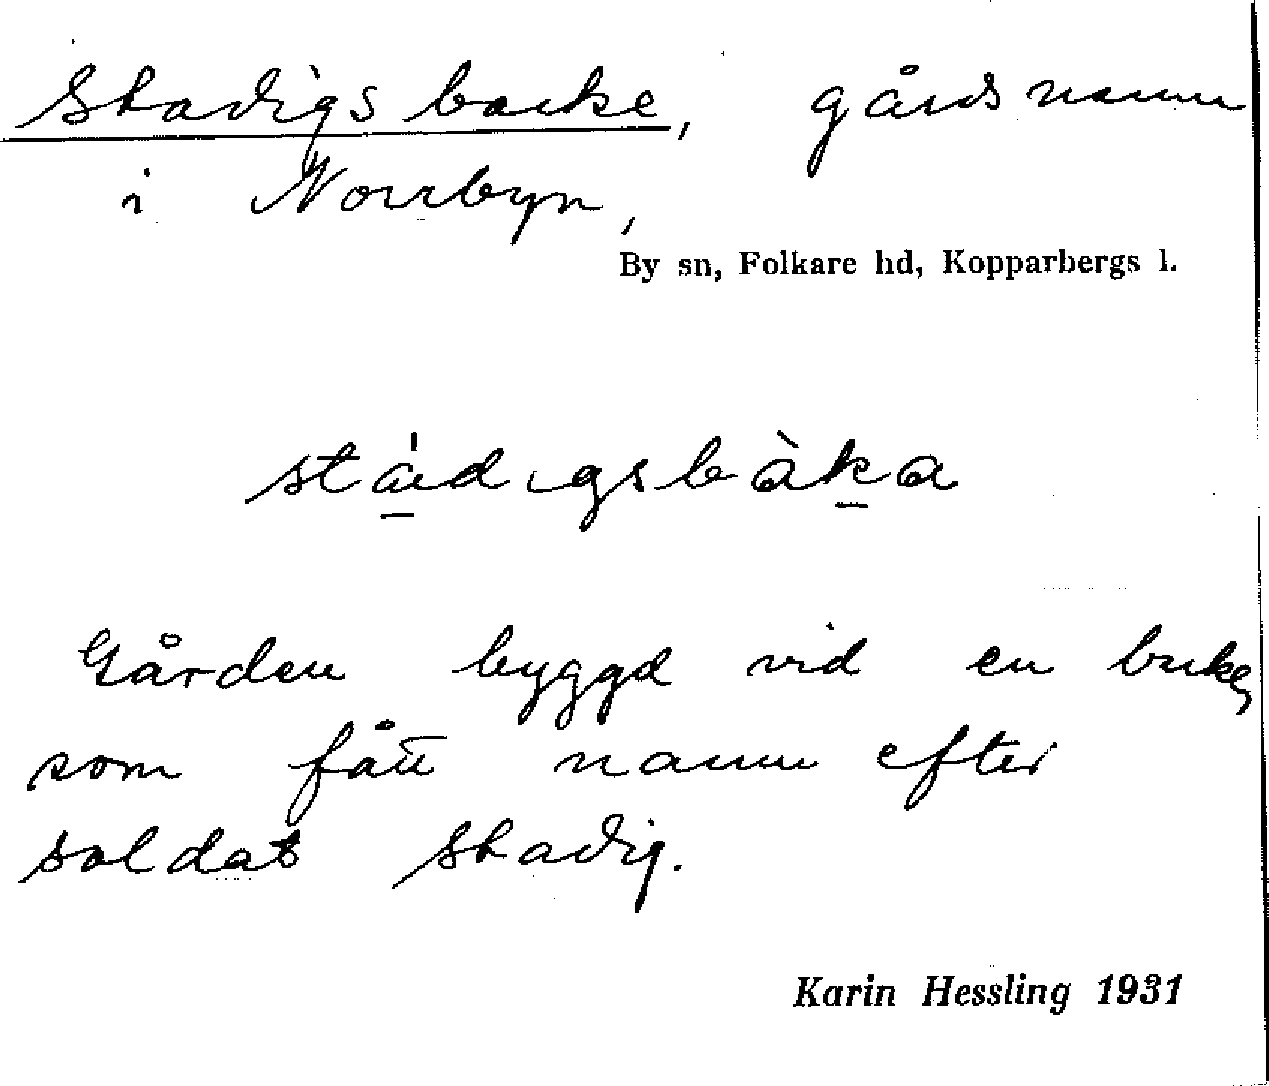 Stadigsbacke, gårdsnamn
i Norrbyn,
By sn, Folkare hd, Kopparbergs l.
Gården byggd vid en backe,
som fått namn efter
soldat Stadig.
Karin Hessling 1931